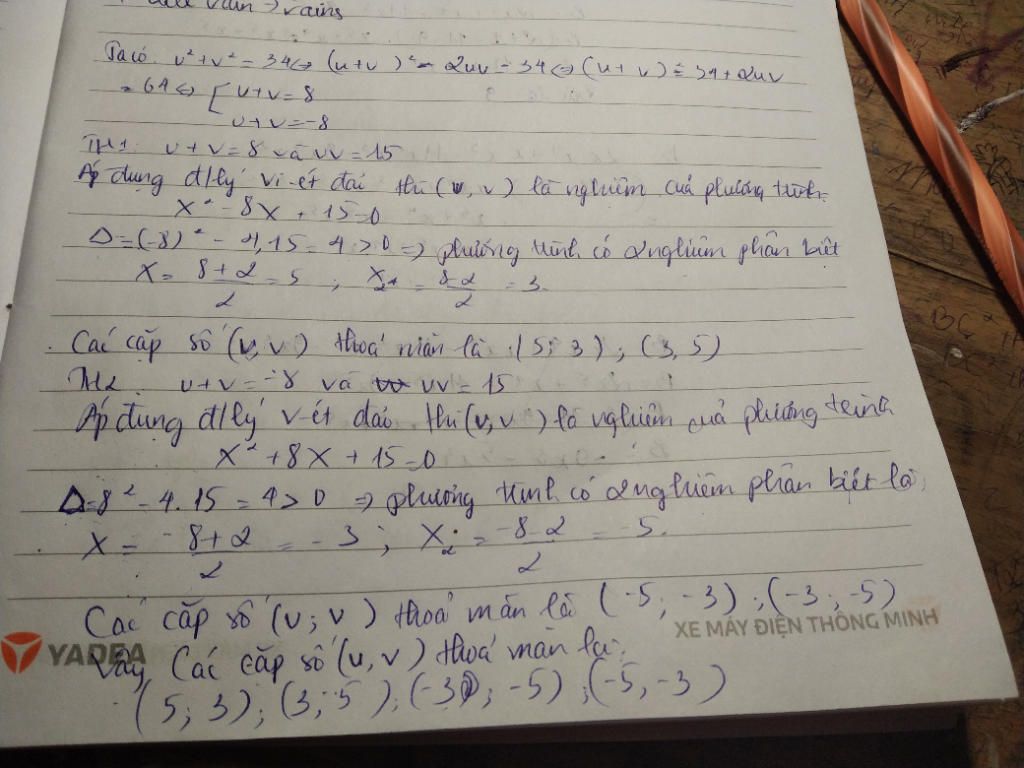 Ta có: u² + v² = 34 ⇔ (u+v)² - 2uv = 34 ⇔ (u+v)² = 34 + 2uv
= 64 ⇔ [ u+v = 8
u+v = -8
TH1: u+v = 8 và uv = 15
Áp dụng đ/lý Vi-ét đảo thì (u, v) là nghiệm của phương trình
X² - 8X + 15 = 0
Δ = (-8)² - 4.15 = 4 > 0 => phương trình có 2 nghiệm phân biệt
X = 8+2/2 = 5 ; X₂ = 8-2/2 = 3.
Các cặp số (u, v) thoả mãn là (5; 3) ; (3, 5)
TH2 u+v = -8 và uv = 15
Áp dụng đ/lý V-ét đảo thì (u, v) là nghiệm của phương trình
X² + 8X + 15 = 0
Δ = 8² - 4.15 = 4 > 0 => phương trình có 2 nghiệm phân biệt là;
X = -8+2/2 = -3 ; X₂ = -8-2/2 = -5.
Các cặp số (u; v) thoả mãn là (-5; -3) ; (-3; -5)
XE MÁY ĐIỆN THÔNG MINH
YADEA
Vậy Các cặp số (u, v) thoả mãn là:
(5; 3) ; (3; 5) ; (-3; -5) ; (-5, -3)